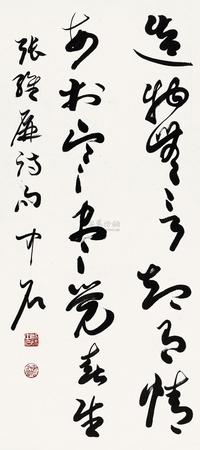 造物無言却有情
每於寒盡覺春生
張維屏詩句 中石